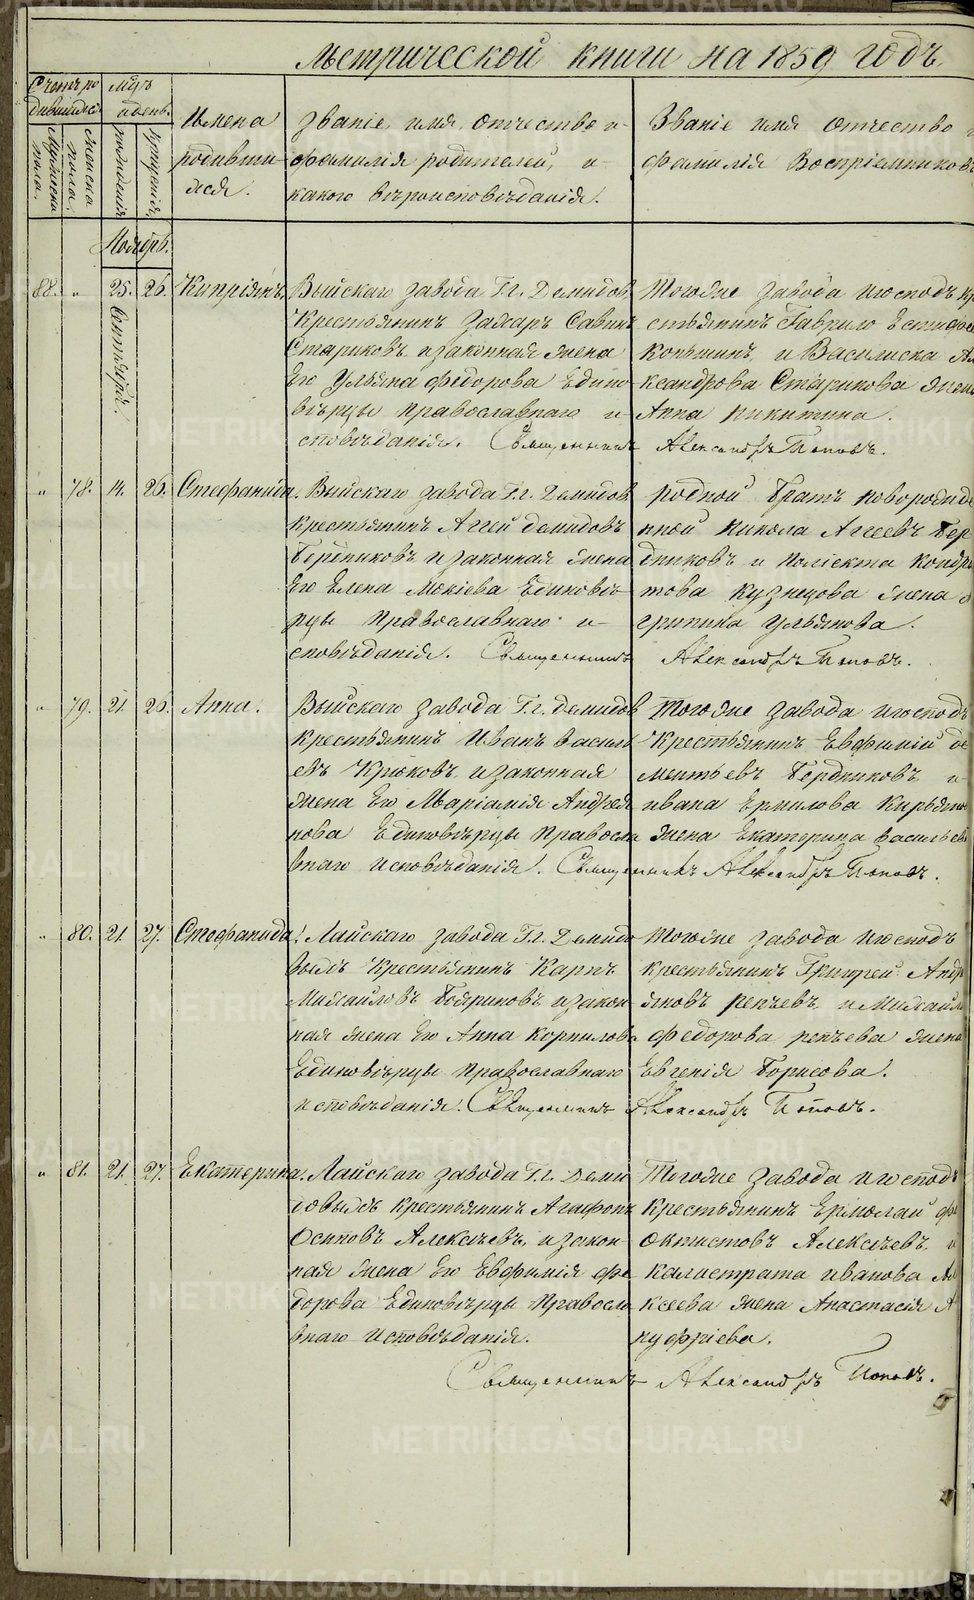 метрической книги на 1859 годъ.
Счетъ родившихся.
Мужеска пола.
Женска пола.
Мцъ и день.
рожденія
крещенія
Имена родившихся.
Званіе, имя, отчество и фамилія родителей, и какого вѣроисповѣданія.
Званіе имя отчество и фамилія Воспріемниковъ
Ноябрь.
88. " 25. 26. Кипріянъ.
Выйскаго завода Г.г. Демидов
Крестьянинъ Захаръ Савинъ
Стариковъ и законная жена
Его Ульяна Федорова Едино
вѣрцы православнаго и-
сповѣданія. Священникъ Александръ Поповъ.
Тогоже завода и господъ кре
стьянинъ Гаврило Естифе
Коньшинъ, и Василиска Але
ксандрова Старикова жена
Анна Никитина.
Октября.
" 78. 14. 26. Стефанида.
Выйскаго завода Г.г. Демидов
крестьянинъ Аггей Демидовъ
Бердниковъ и законная жена
Его Елена Мокіева Единовѣ-
рцы Православнаго и-
сповѣданія. Священникъ Александръ Поповъ.
родной братъ новорожде
нной Никола Аггеевъ Бер
дниковъ и Поліекта Кондра
това Кузнецова жена А
грипина Ульянова.
" 79. 21. 26. Анна.
Выйскаго завода Г.г. Демидов
крестьянинъ Иванъ Василь
евъ Крюковъ и законная
жена Его Маріамія Андрея
нова Единовѣрцы Правосла
внаго исповѣданія. Священникъ Александръ Поповъ.
Тогоже завода и господъ
Крестьянинъ Евфимій Де
ментьевъ Бердниковъ и
Ивана Ермилова Кирьяно
жена Екатерина Васильева
" 80. 21. 27. Стефанида.
Лайскаго завода Г.г. Демидо
выхъ Крестьянинъ Карпъ
Михайловъ Бояриновъ и закон
ная жена Его Анна Корнилова
Единовѣрцы православнаго
исповѣданія. Священникъ Александръ Поповъ.
Тогоже завода и господъ
крестьянинъ Григорей Андр
яновъ Репѣевъ, и Михайла
Федорова Репѣева жена
Евгенія Борисова.
" 81. 21. 27. Екатерина.
Лайскаго завода Г.г. Деми
довыхъ крестьянинъ Агафонъ
Осиповъ Алексѣевъ, и закон-
ная жена Его Евфимія Фе
дорова Единовѣрцы Правосла
внаго исповѣданія.
Тогоже завода и господъ
Крестьянинъ Ермолай Фе
октистовъ Алексѣевъ и
Калистрата Иванова Але
ксеева жена Анастасія А
нуфріева.
Священникъ Александръ Поповъ.
METRIKI.GASO-URAL.RU